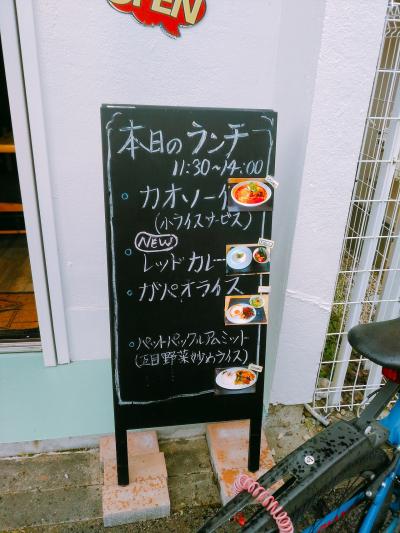 OPEN
本日のランチ
11:30~14:00
カオソーイ
(小ライスサービス)
NEW
レッドカレー
ガパオライス
パットパックルアムミット
(五目野菜炒めライス)